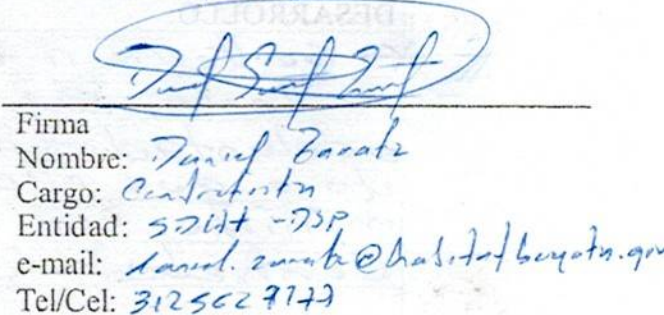 DESARROLLO
Firma
Nombre: Daniel Zarate
Cargo: Contratista
Entidad: SDHT - DSP
e-mail: daniel.zarate@habitatbogota.gov
Tel/Cel: